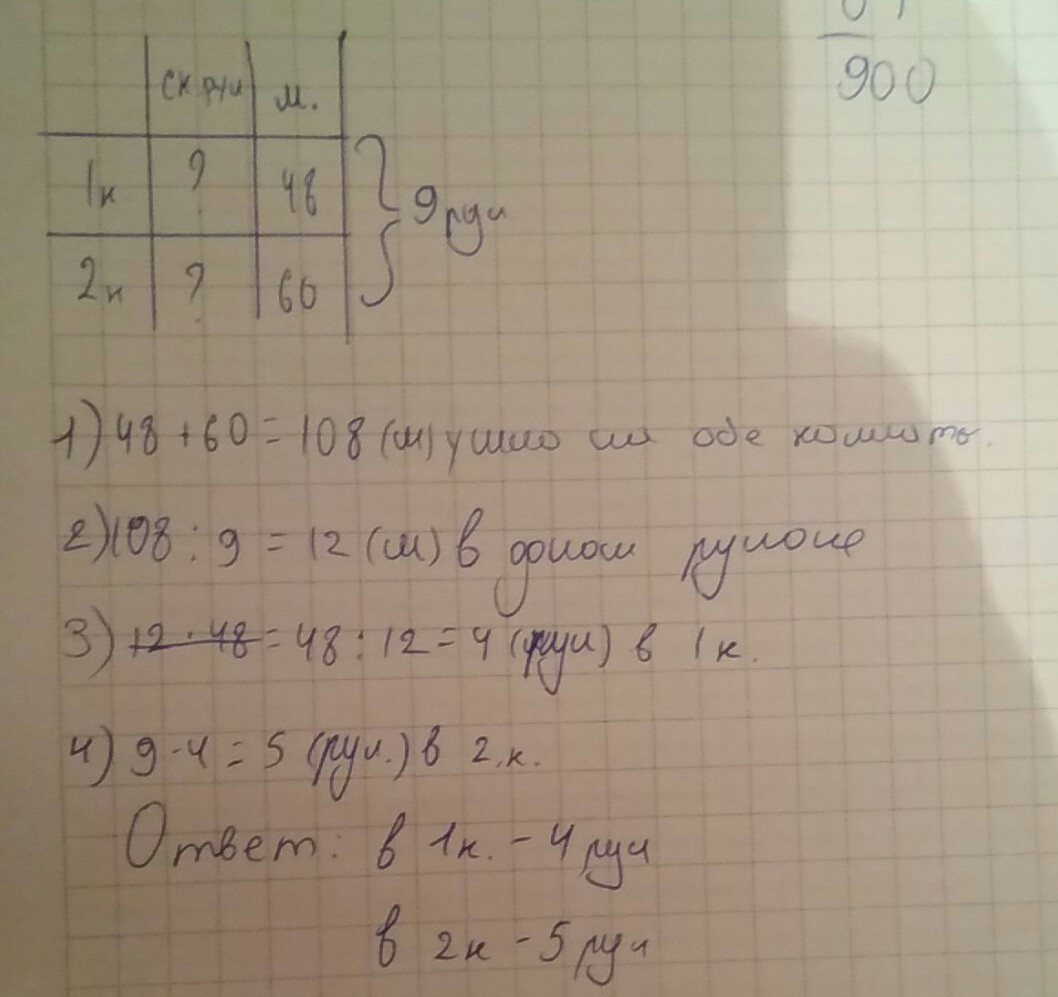 900
ск рул м.
1к ? 48
9 рул
2к ? 60
1) 48 + 60 = 108 (м) ушло на обе комнаты.
2) 108 : 9 = 12 (м) в одном рулоне
3) 12 · 48 = 48 : 12 = 4 (рул) в 1 к.
4) 9 - 4 = 5 (рул.) в 2.к.
Ответ: в 1к. - 4 рул
в 2к - 5 рул